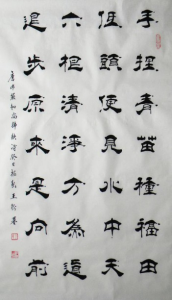 手捏青苗種福田
低頭便見水中天
六根清淨方為道
退步原來是向前
唐 和尚插秧詩 王